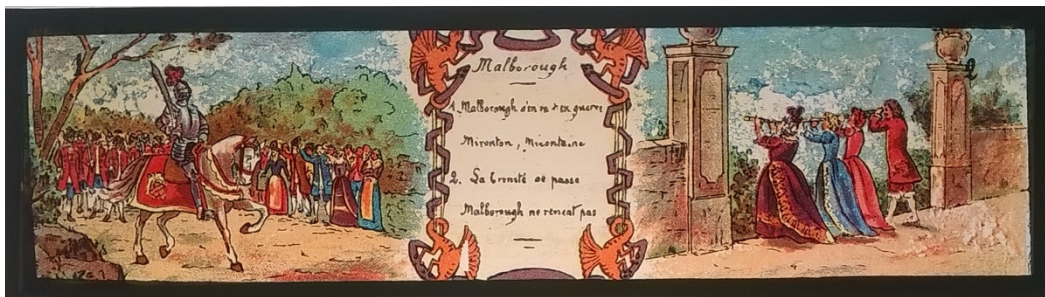 Malborough
1. Malborough s'en va t en guerre
Mironton, Mirontaine
2. La Trinité se passe
Malborough ne revient pas
2